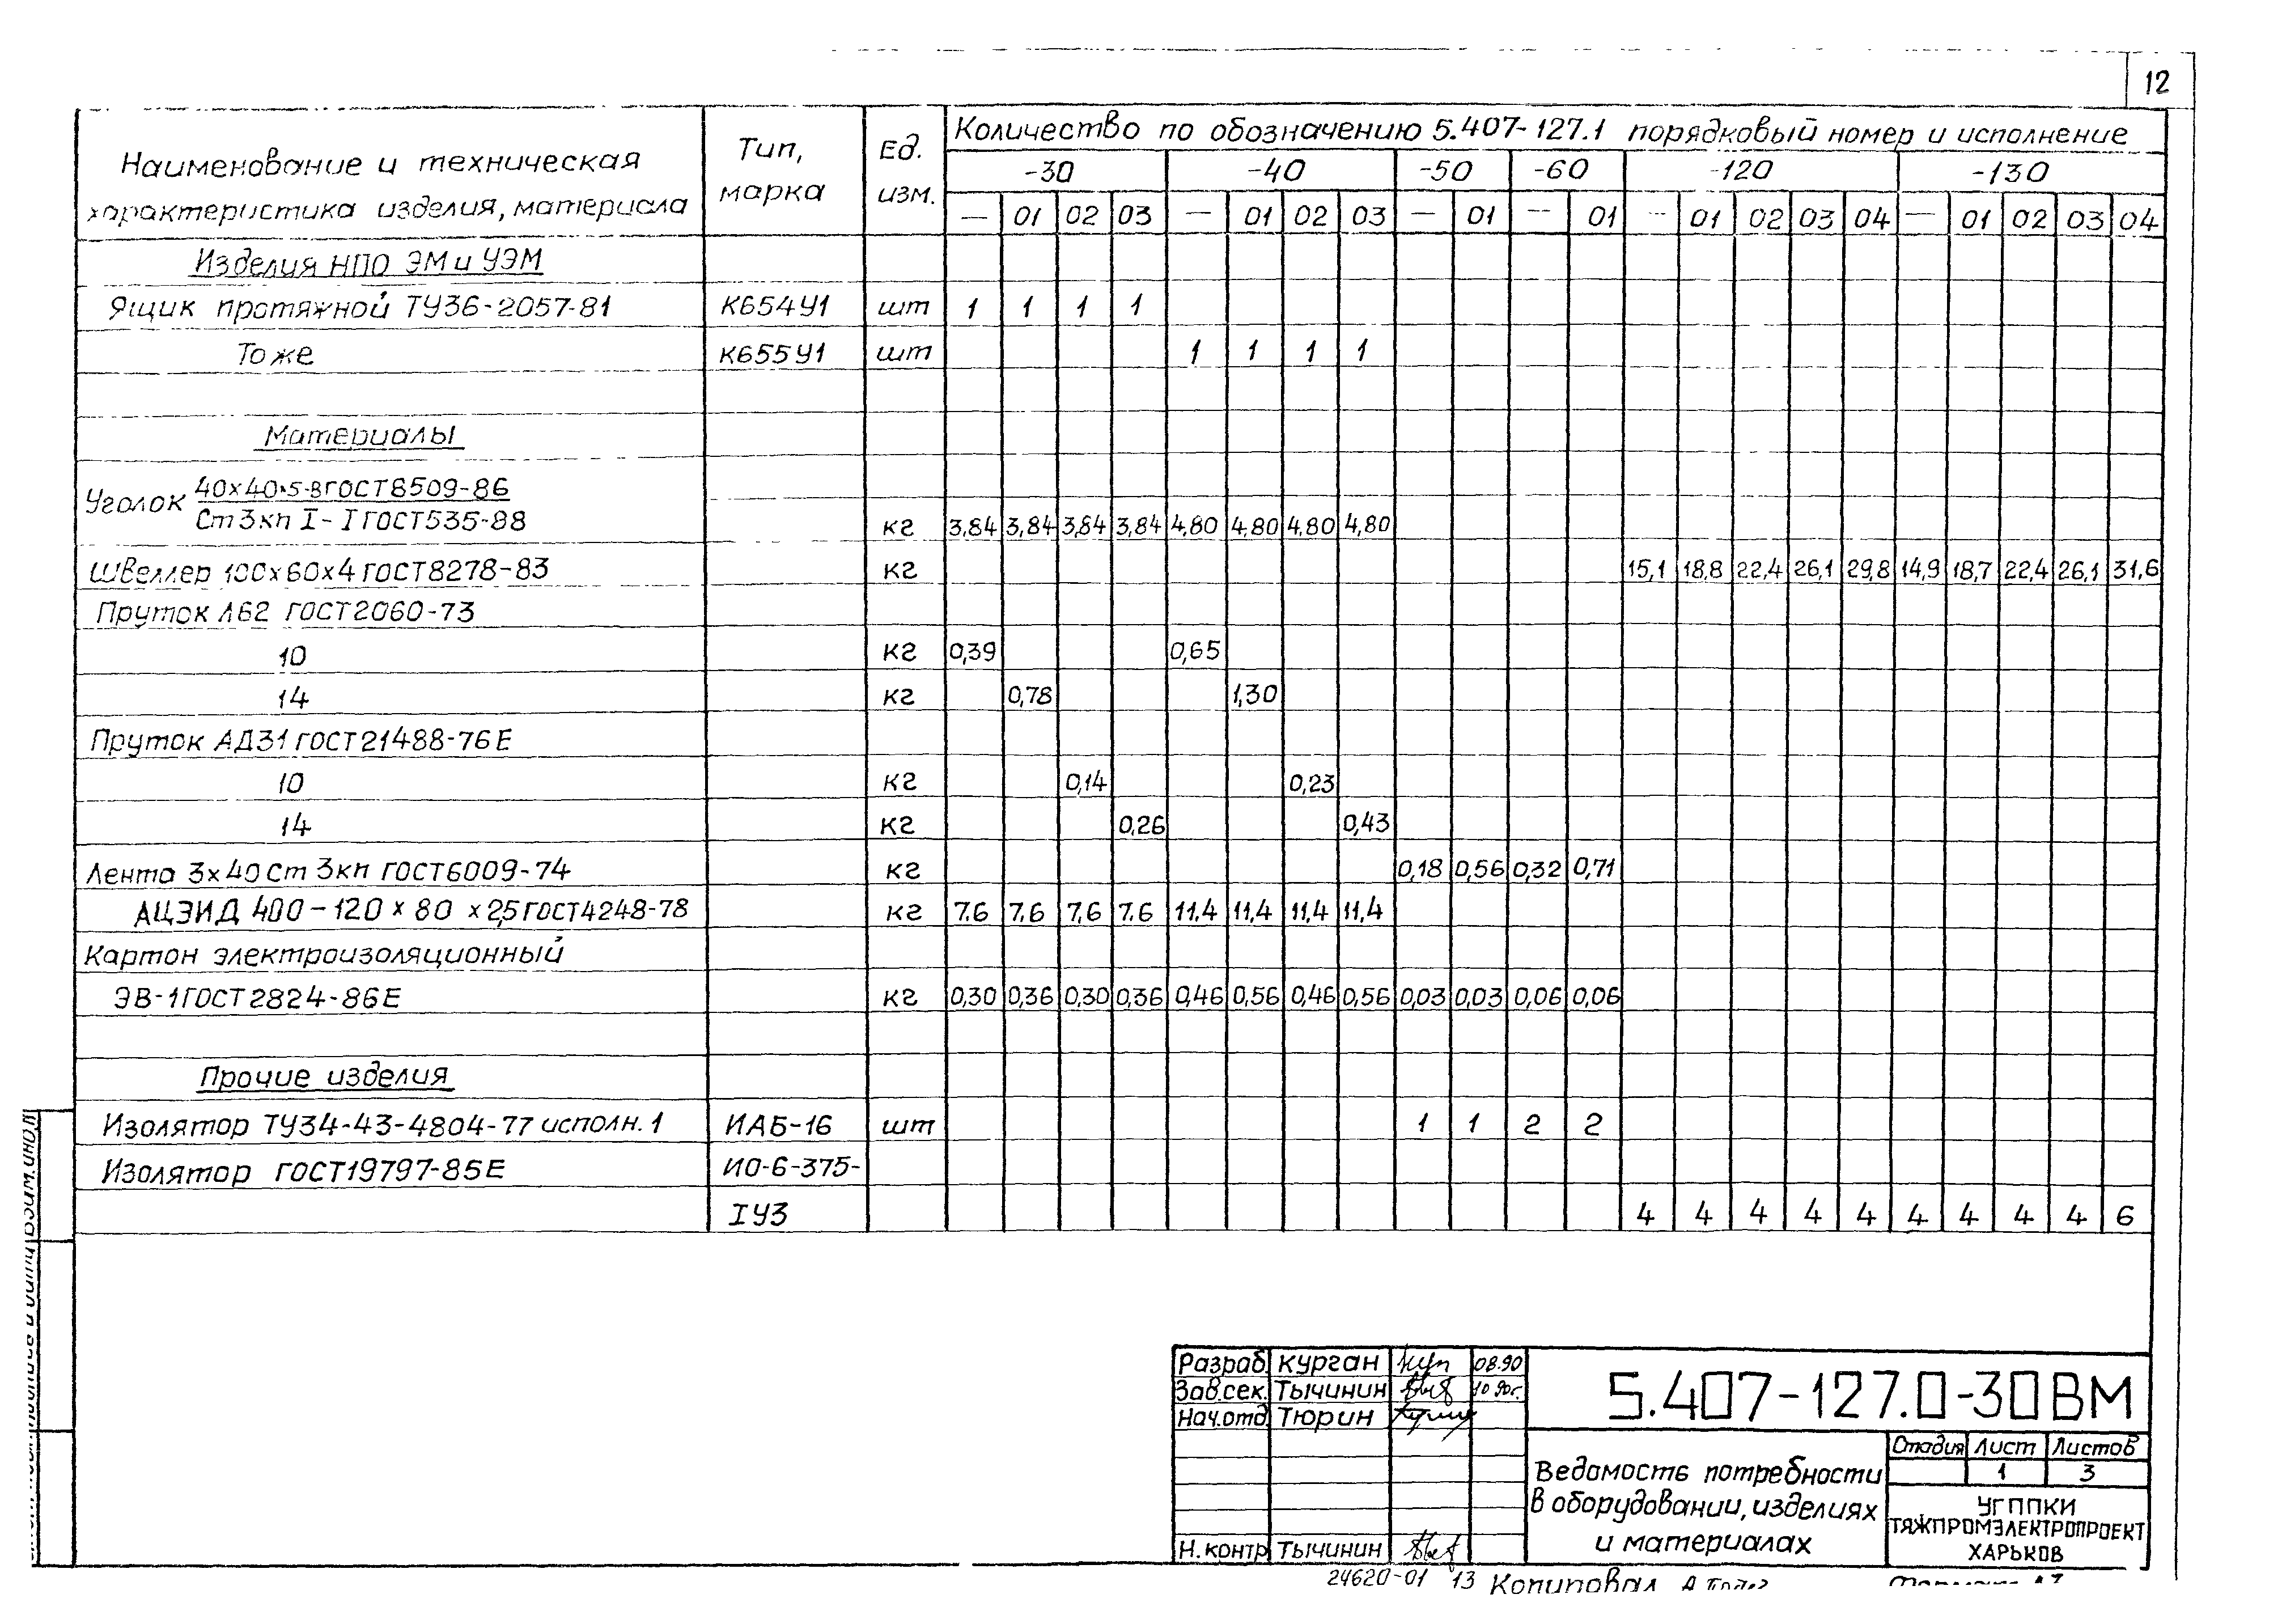 12
Наименование и техническая характеристика изделия, материала
Тип, марка
Ед. изм.
Количество по обозначению 5.407-127.1 порядковый номер и исполнение
-30 -40 -50 -60 -120 -130
— 01 02 03 — 01 02 03 — 01 — 01 — 01 02 03 04 — 01 02 03 04
Изделия НПО ЭМ и УЭМ
Ящик протяжной ТУ36-2057-81 К654У1 шт 1 1 1 1
То же К655У1 шт 1 1 1 1
Материалы
Уголок 40х40х5-В ГОСТ8509-86
Ст3кп I-I ГОСТ535-88 кг 3,84 3,84 3,84 3,84 4,80 4,80 4,80 4,80
Швеллер 100х60х4 ГОСТ8278-83 кг 15,1 18,8 22,4 26,1 29,8 14,9 18,7 22,4 26,1 31,6
Пруток Л62 ГОСТ2060-73
10 кг 0,39 0,65
14 кг 0,78 1,30
Пруток АД31 ГОСТ21488-76Е
10 кг 0,14 0,23
14 кг 0,26 0,43
Лента 3х40 Ст 3кп ГОСТ6009-74 кг 0,18 0,56 0,32 0,71
АЦЭИД 400-120х80 х2,5 ГОСТ4248-78 кг 7,6 7,6 7,6 7,6 11,4 11,4 11,4 11,4
Картон электроизоляционный
ЭВ-1 ГОСТ2824-86Е кг 0,30 0,36 0,30 0,36 0,46 0,56 0,46 0,56 0,03 0,03 0,06 0,06
Прочие изделия
Изолятор ТУ34-43-4804-77 исполн.1 ИАБ-16 шт 1 1 2 2
Изолятор ГОСТ19797-85Е ИО-6-375-
IУЗ 4 4 4 4 4 4 4 4 4 6
Разраб. Курган 08.90
Зав.сек. Тычинин 10 90г.
Нач.отд. Тюрин
Н.контр Тычинин
5.407-127.0-30ВМ
Ведомость потребности
в оборудовании, изделиях
и материалах
Стадия Лист Листов
1 3
УГППКИ
ТЯЖПРОМЭЛЕКТРОПРОЕКТ
ХАРЬКОВ
24620-01 13 Копировал